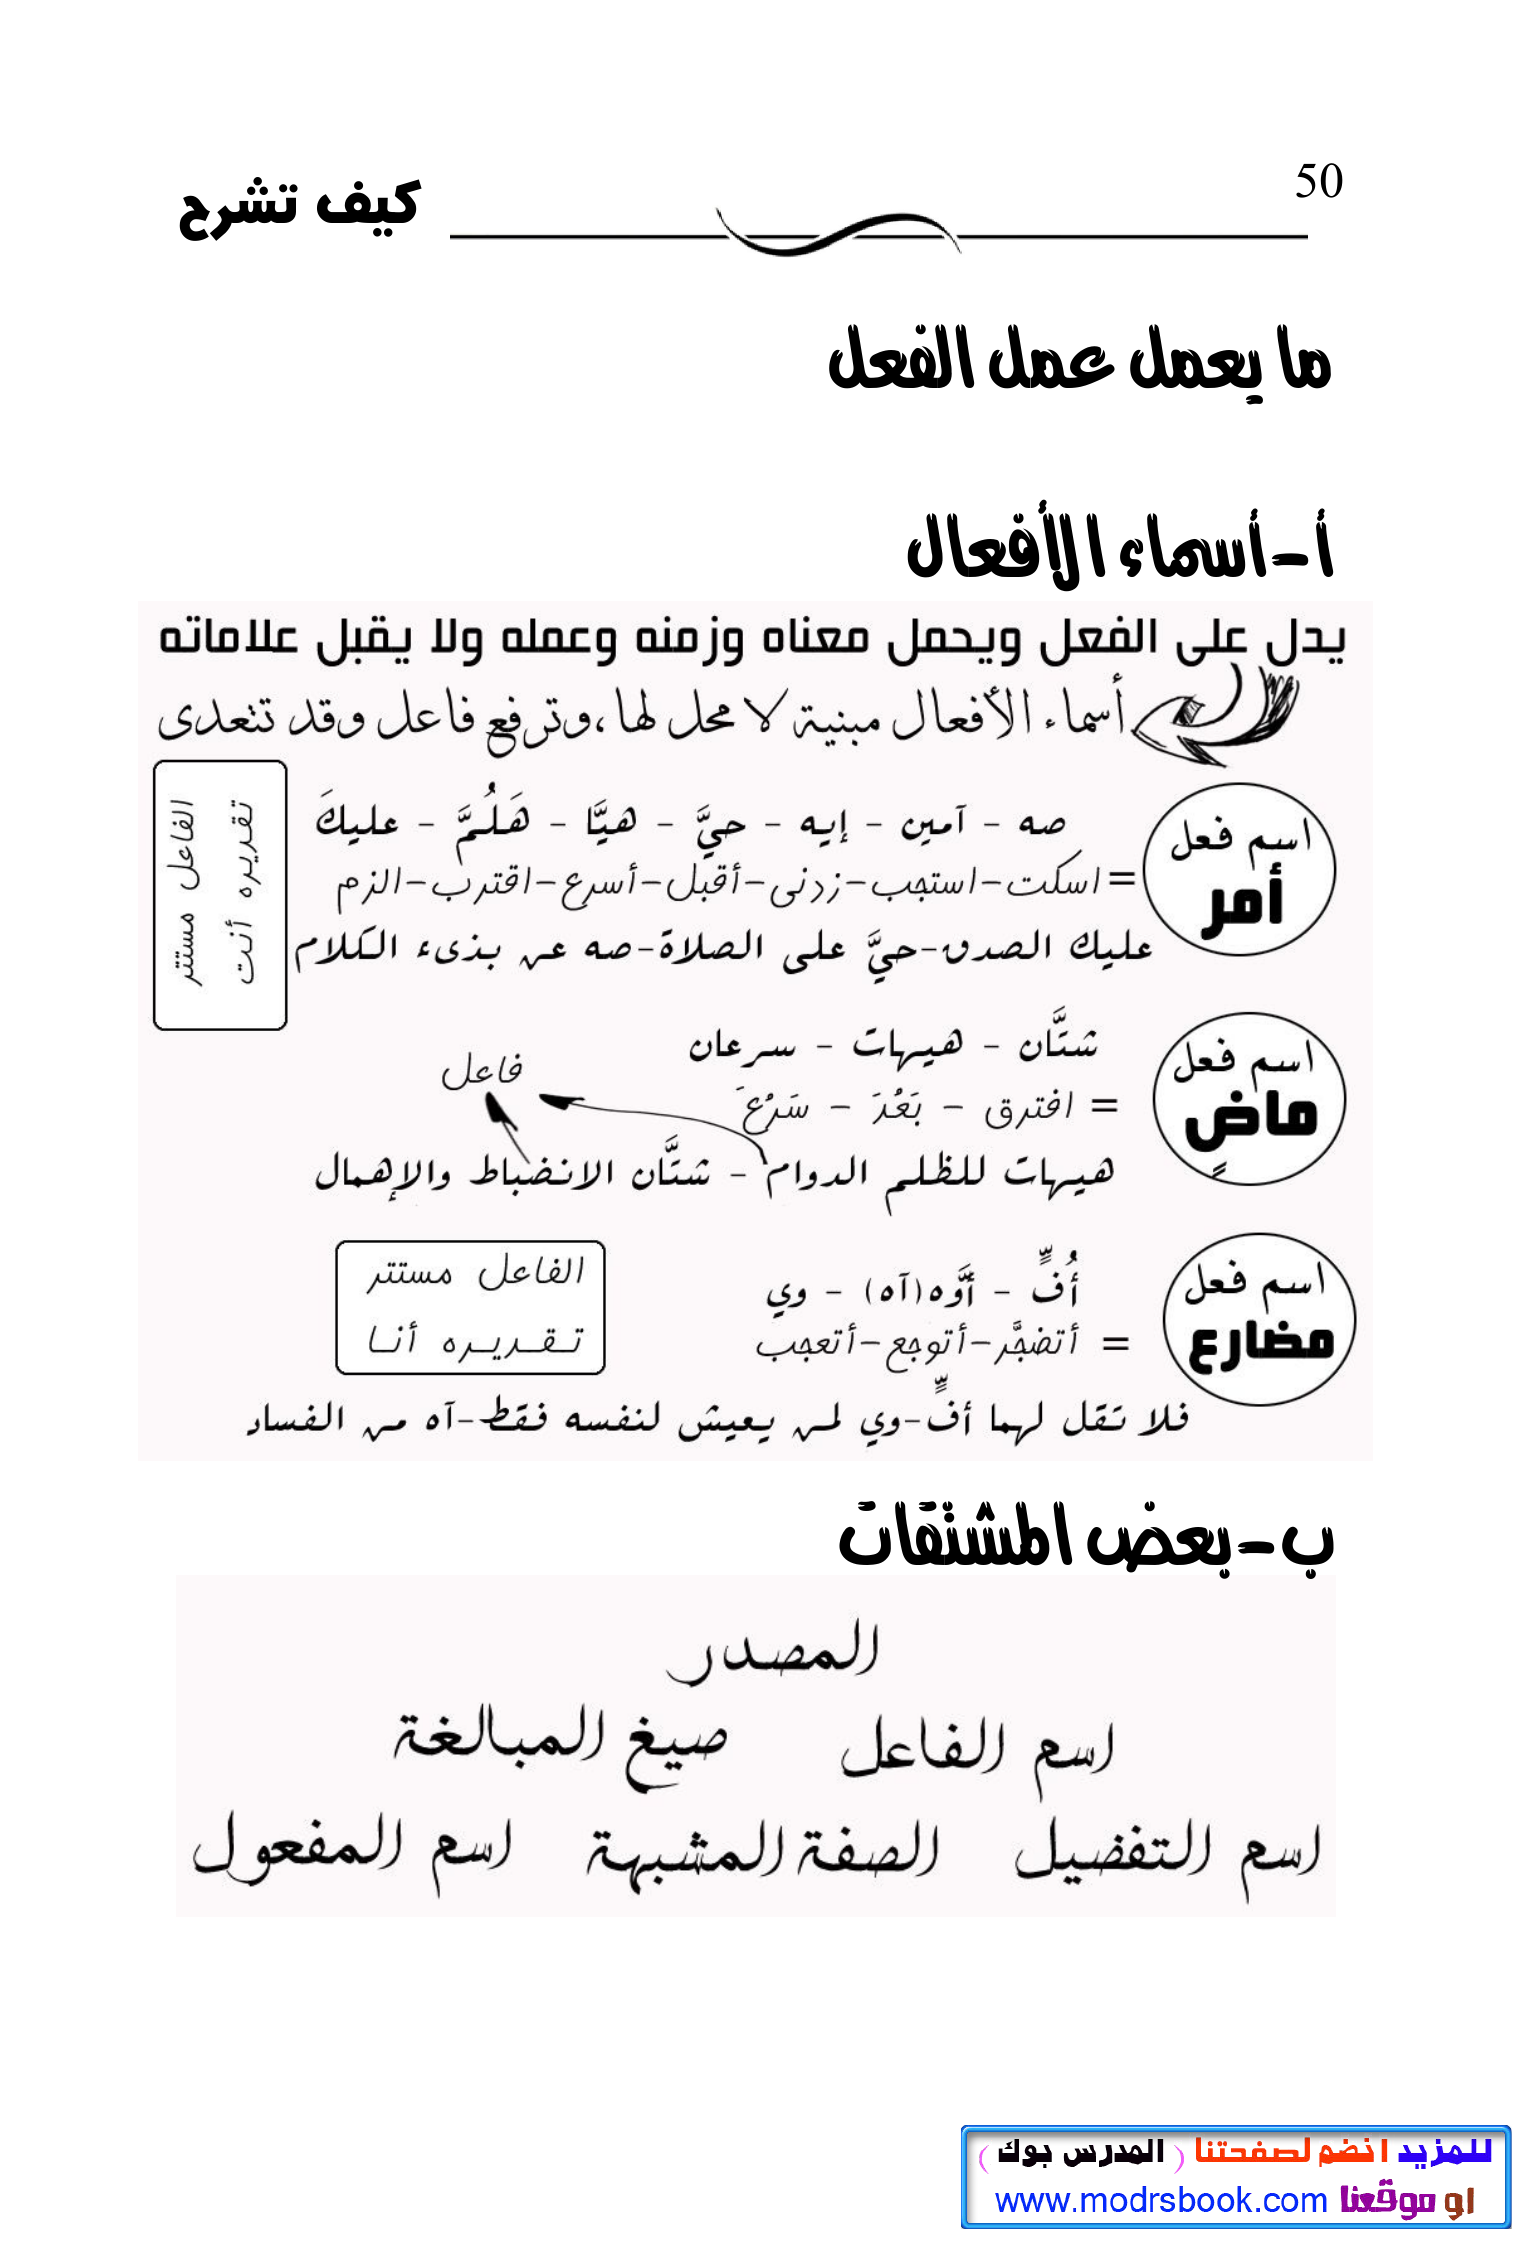 50
كيف تشرح
ما يعمل عمل الفعل
أ-أسماء الأفعال
يدل على الفعل ويحمل معناه وزمنه وعمله ولا يقبل علاماته
أسماء الأفعال مبنية لا محل لها، وترفع فاعل وقد تتعدى
اسم فعل
أمر
صه - آمين - إيه - حيَّ - هيَّا - هَلُمَّ - عليكَ
=اسكت-استجب-زدنى-أقبل-أسرع-اقترب-الزم
عليك الصدق-حيَّ على الصلاة-صه عن بذىء الكلام
الفاعل مستتر
تقديره أنت
اسم فعل
ماضٍ
شتَّان - هيهات - سرعان
= افترق - بَعُدَ - سَرُعَ
فاعل
هيهات للظلم الدوام - شتَّان الانضباط والإهمال
اسم فعل
مضارع
أُفٍّ - أوَّه(آه) - وي
= أتضجَّر-أتوجع-أتعجب
الفاعل مستتر
تقديره أنا
فلا تقل لهما أفٍّ-وي لمن يعيش لنفسه فقط-آه من الفساد
ب-بعض المشتقات
المصدر
اسم الفاعل صيغ المبالغة
اسم التفضيل الصفة المشبهة اسم المفعول
للمزيد انضم لصفحتنا ( المدرس بوك )
او موقعنا www.modrsbook.com